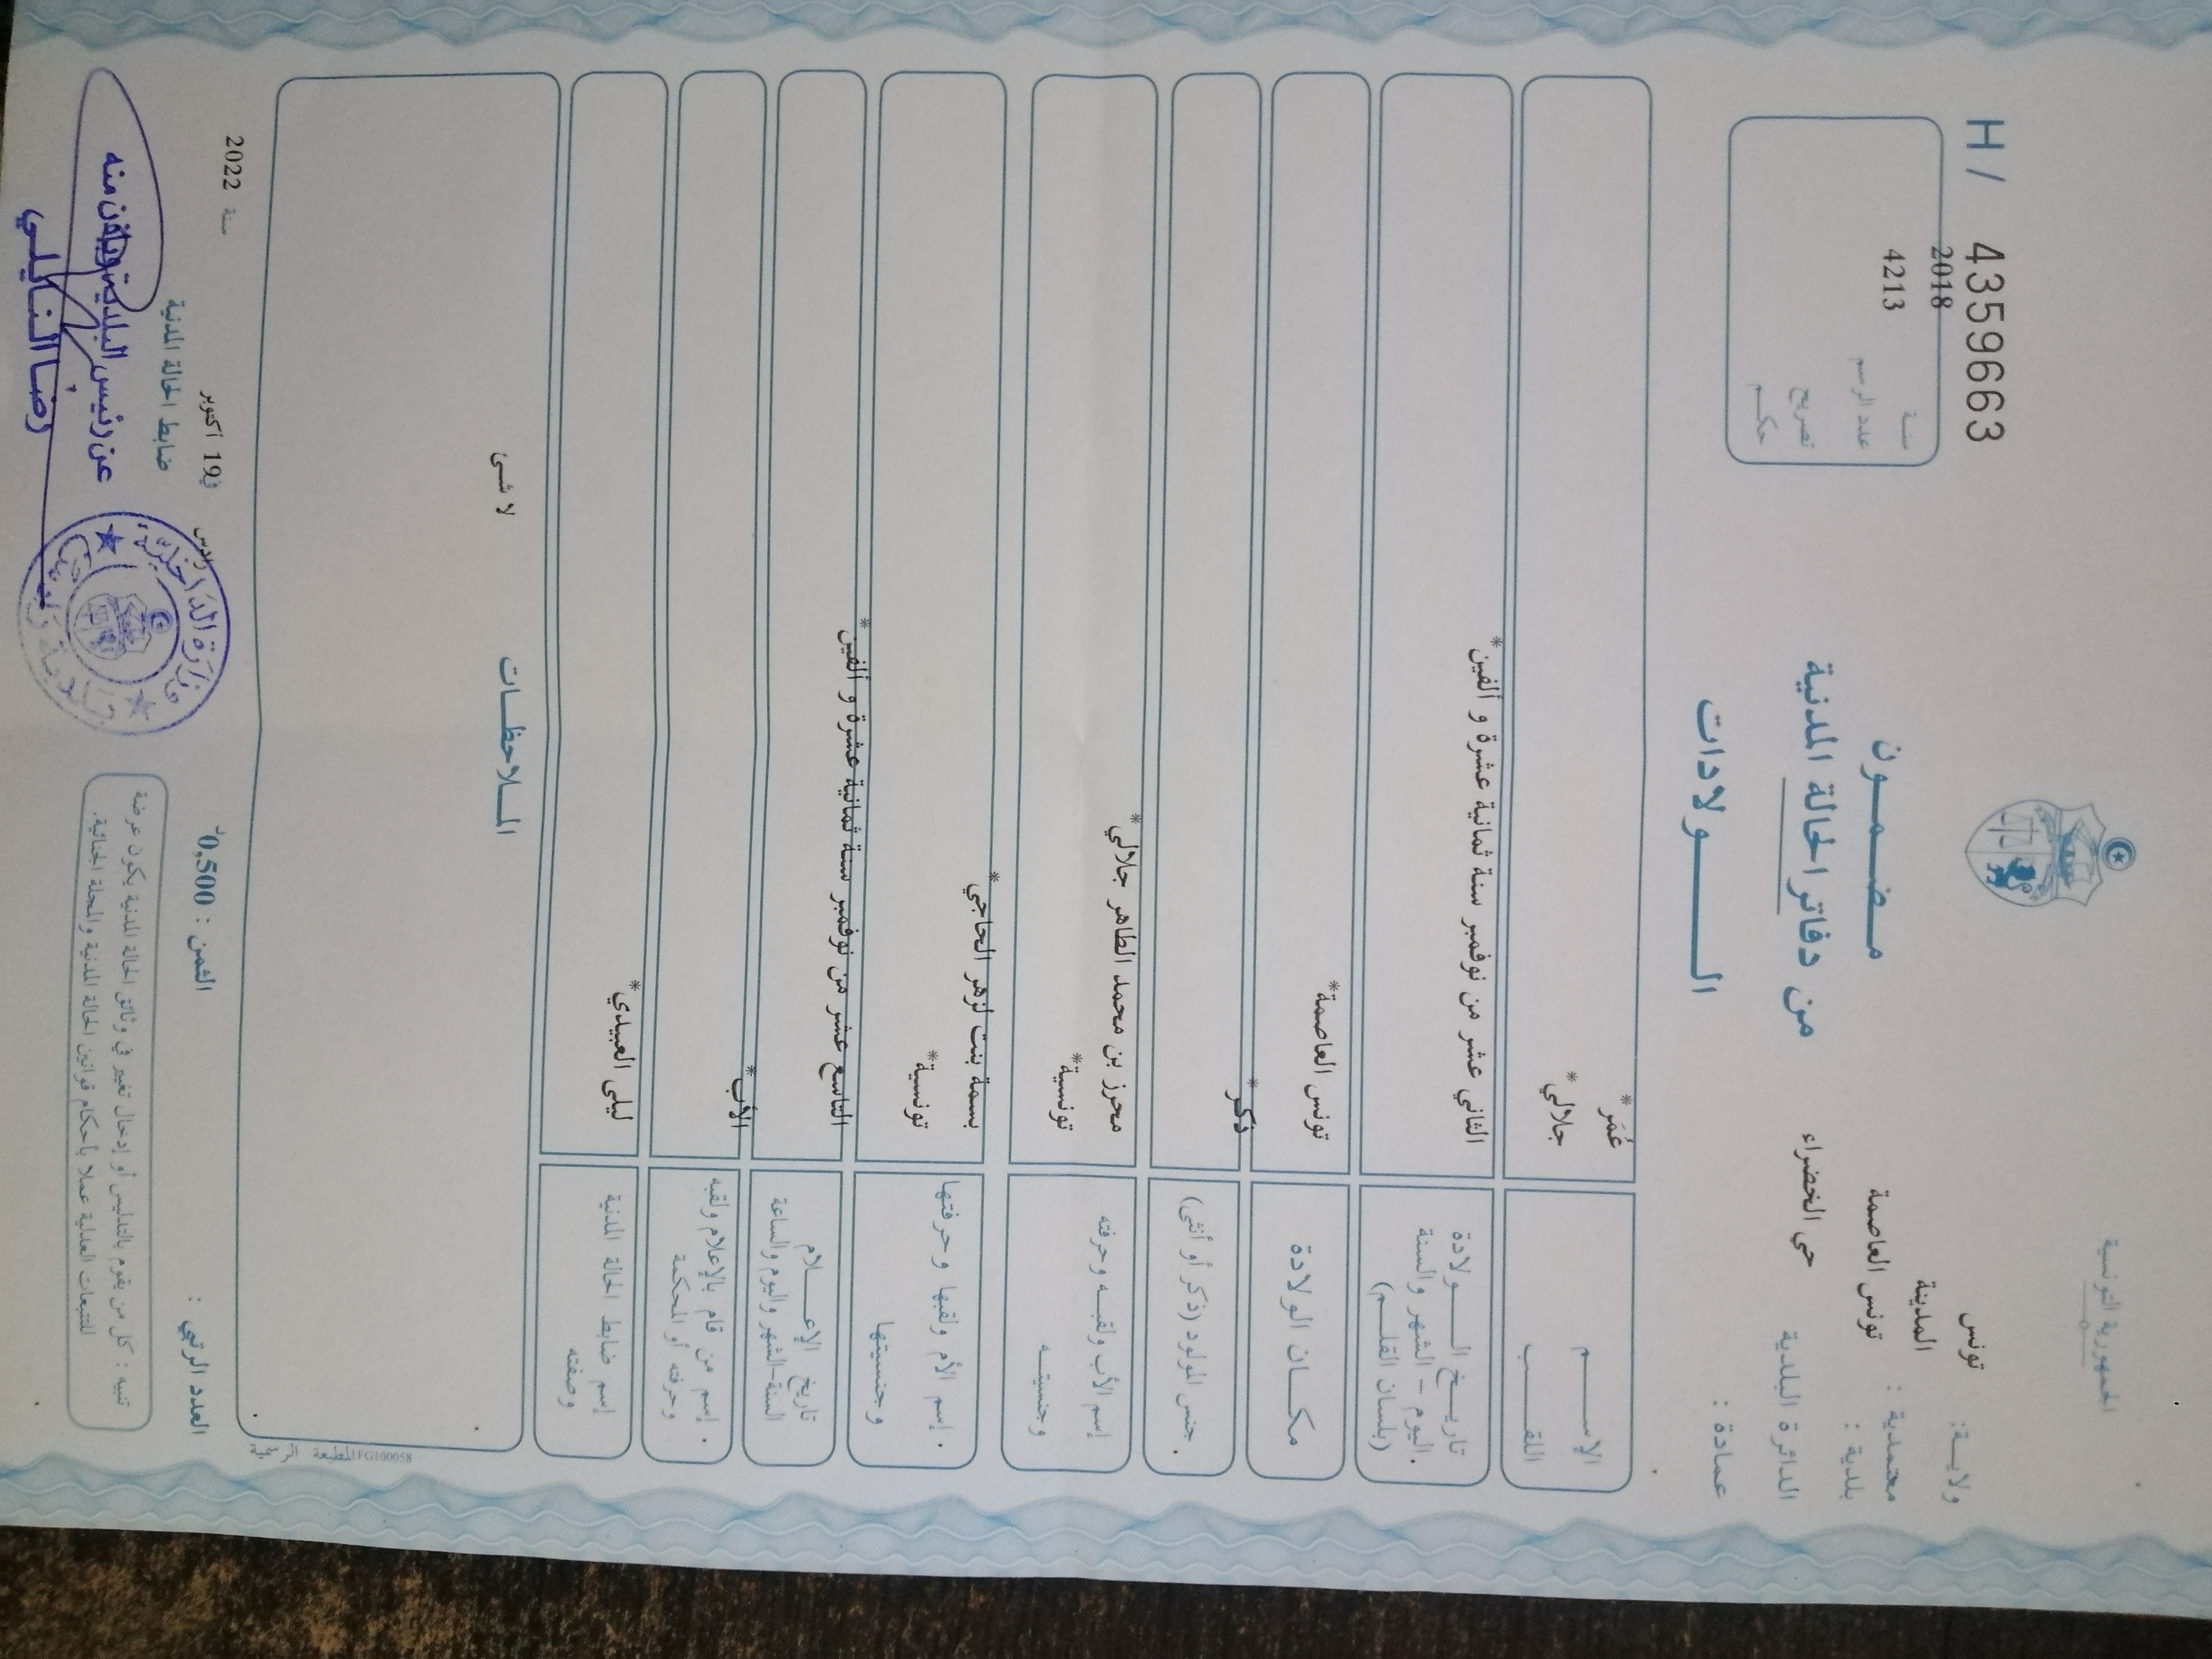 الجمهورية التونسية
ولايـة: تونس
معتمدية : المدينة
بلدية : تونس العاصمة
الدائرة البلدية حي الخضراء
عمادة :
H / 4359663
2018
سنـة
4213
عدد الرسم
تصريح
حكـم
مـضـمـون
من دفاتر الحالة المدنية
الـــولادات
الإســـم
عُمَر*
اللقـــب
جلالي*
تاريـخ الـــولادة
.اليوم – الشهر والسنة
(بلسان القلـــم)
الثاني عشر من نوفمبر سنة ثمانية عشرة و ألفين*
مكـــان الولادة
تونس العاصمة*
جنس المولود (ذكر أو أنثى)
ذكر*
إسم الأب ولقبـه وحرفته
وجنسيتـــه
محرز بن محمد الطاهر جلالي*
تونسية*
إسم الأم ولقبها وحرفتها
وجنسيتها
بسمة بنت لزهر الحاجي*
تونسية*
تاريخ الإعـــلام
السنة-الشهر واليوم والساعة
التاسع عشر من نوفمبر سنة ثمانية عشرة و ألفين*
إسم من قام بالإعلام ولقبه
وحرفته أو المحكمة
الأب*
إسم ضابط الحالة المدنية
وصفته
ليلى العبيدي*
المـلاحظـات
لا شئ
المطبعة الرسمية FG100058
العدد الرتبي :
الثمن : 0,500د
رادس في 19 أكتوبر سنة 2022
ضابط الحالة المدنية
عن رئيس البلدية وبإذن منه
رضا النايلي
وزارة الداخلية
تنبيه : كل من يقوم بالتدليس أو إدخال تغيير في وثائق الحالة المدنية يكون عرضة
للتتبعات العدلية عملا بأحكام قوانين الحالة المدنية والمجلة الجنائية.